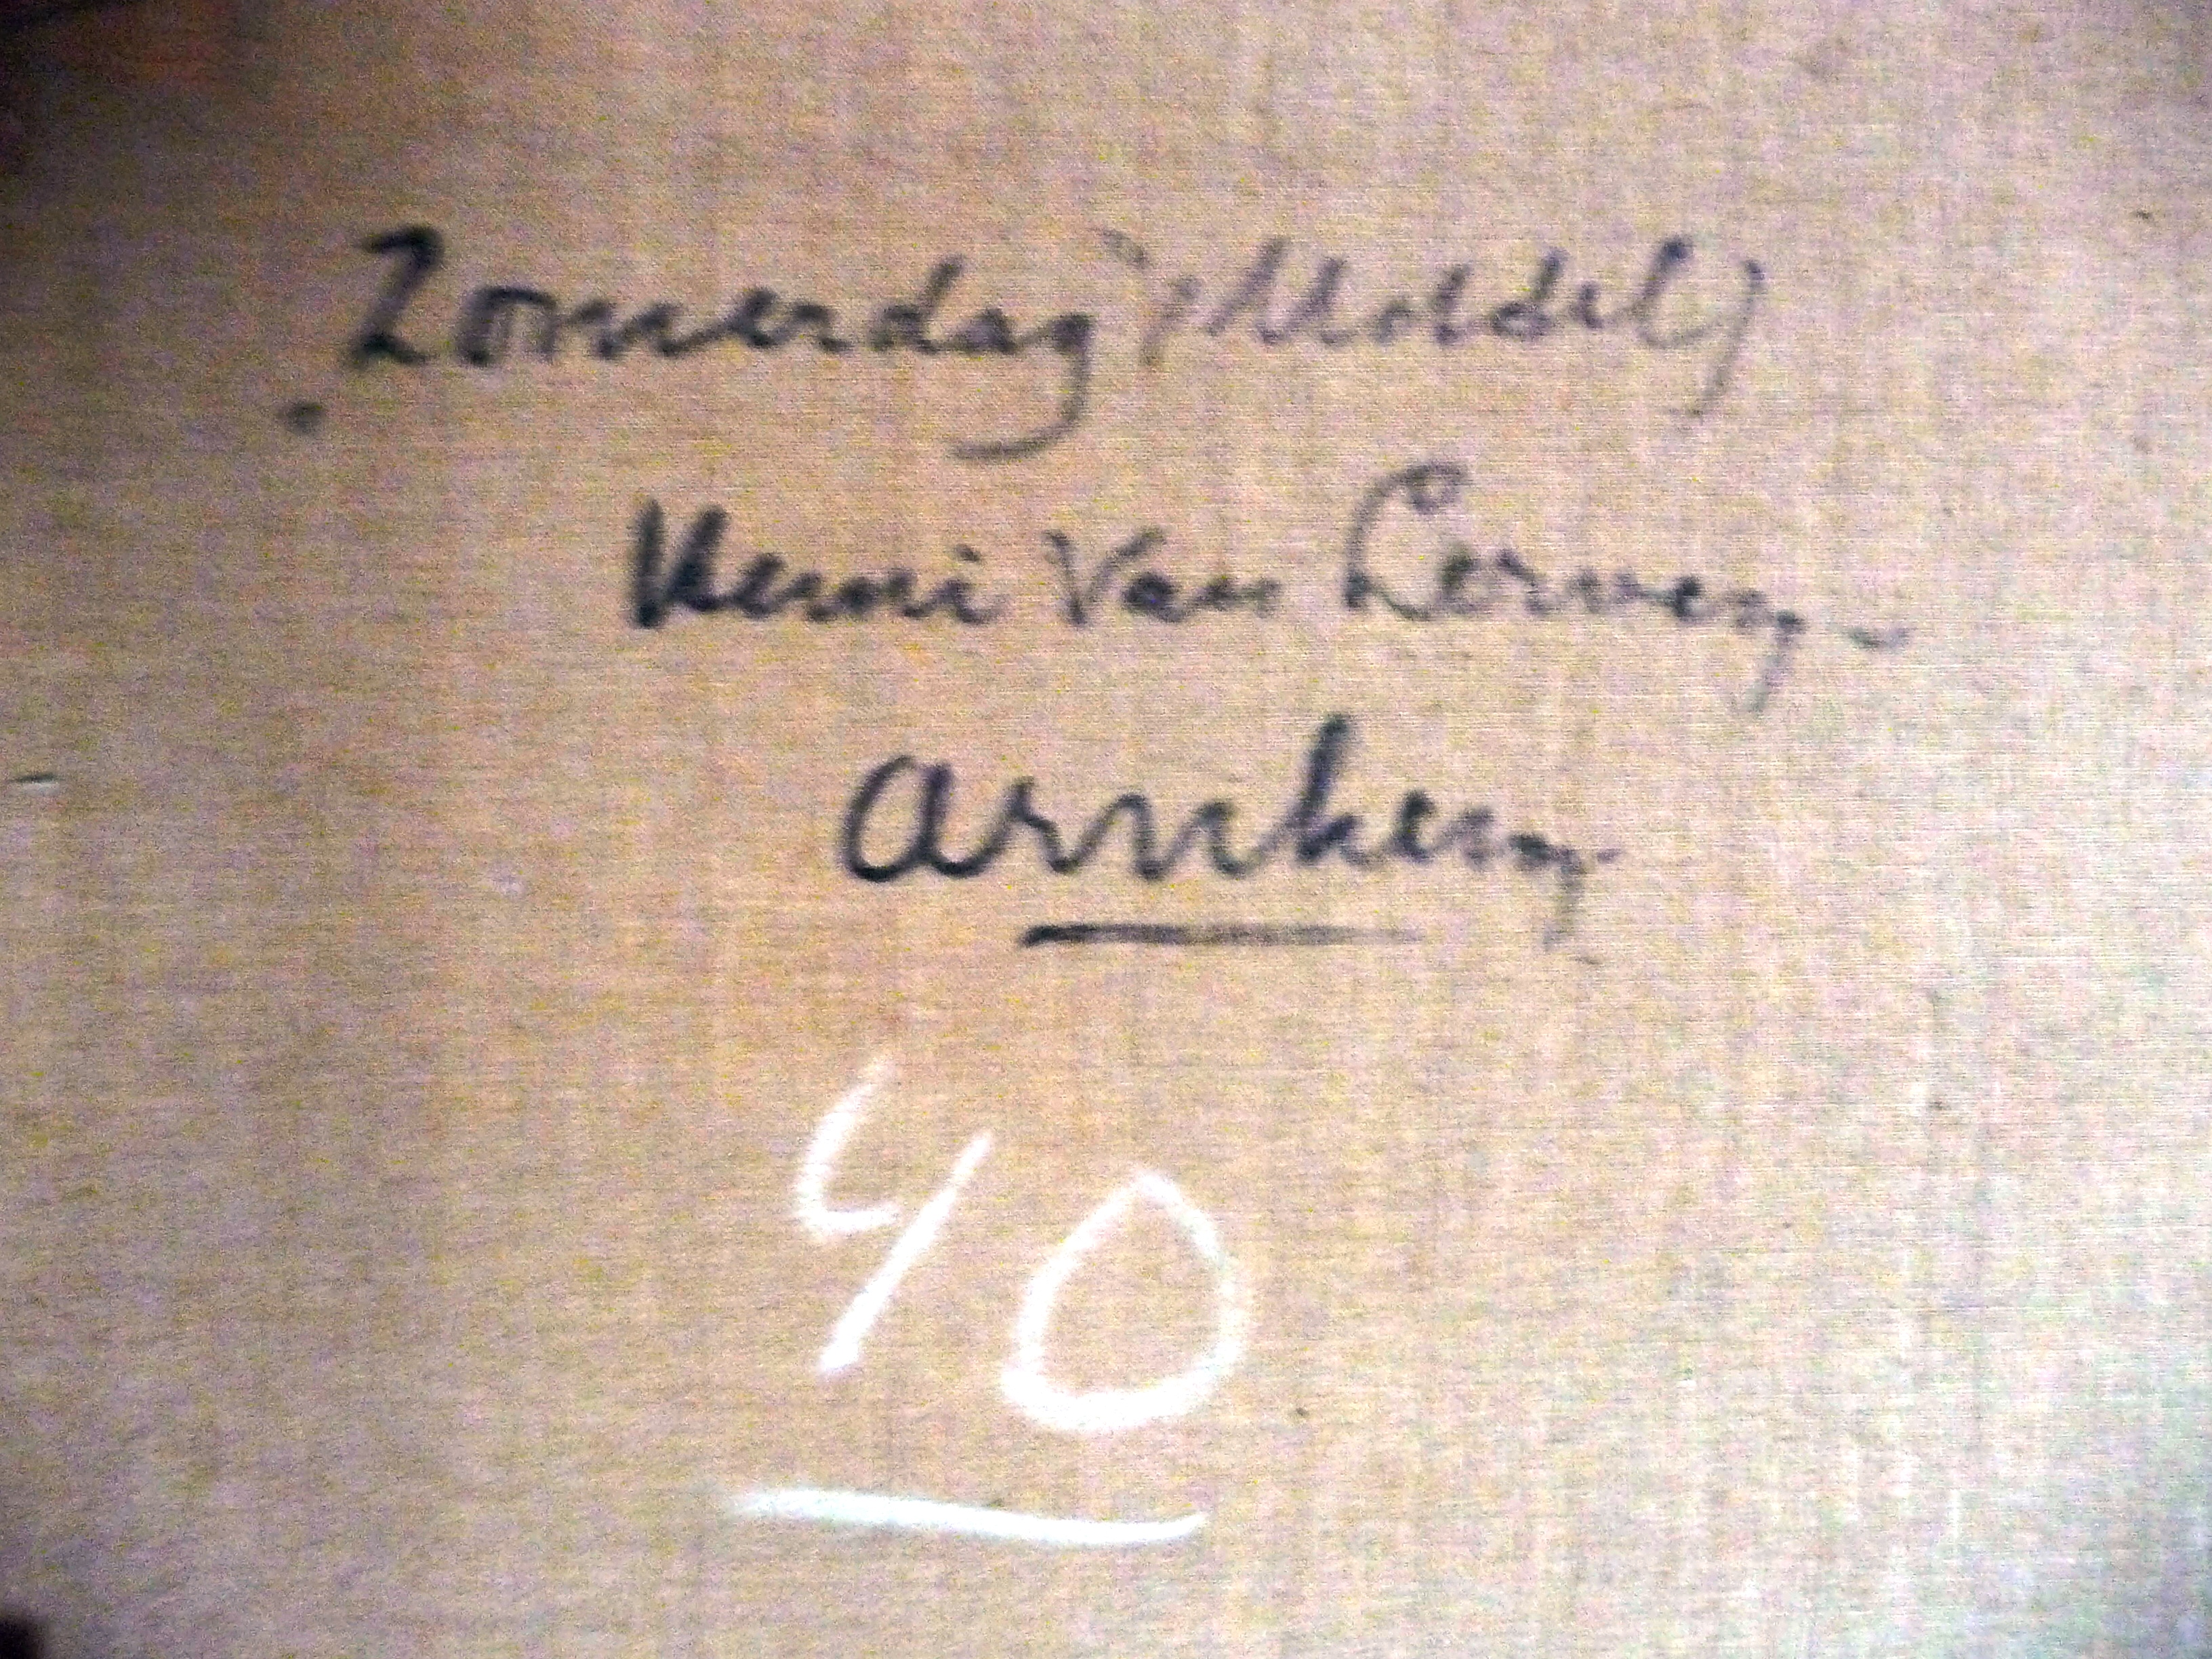 Zomerdag (Model)
Henri Van Lerven
Arnhem
40